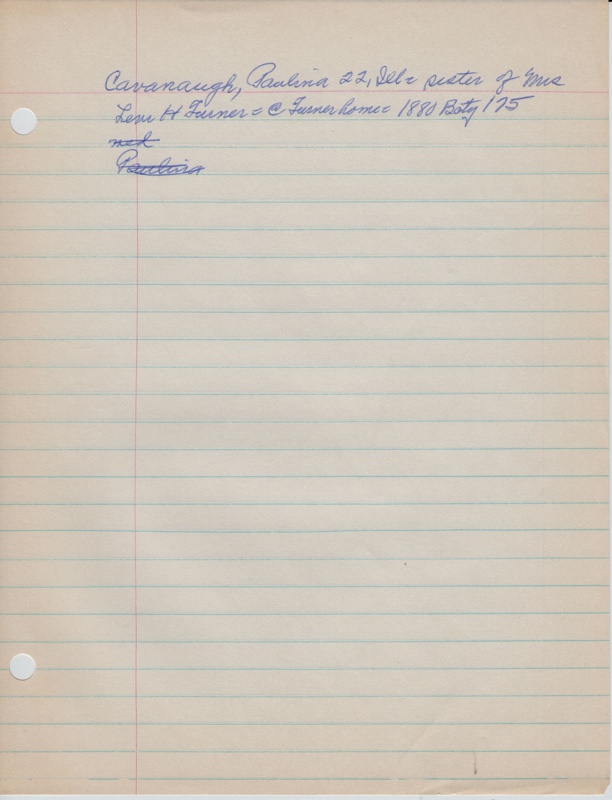 Cavanaugh, Paulina 22, Ill = sister of Mrs
Levi H Turner = @ Turner home = 1880 Baty 175
ned
Paulina